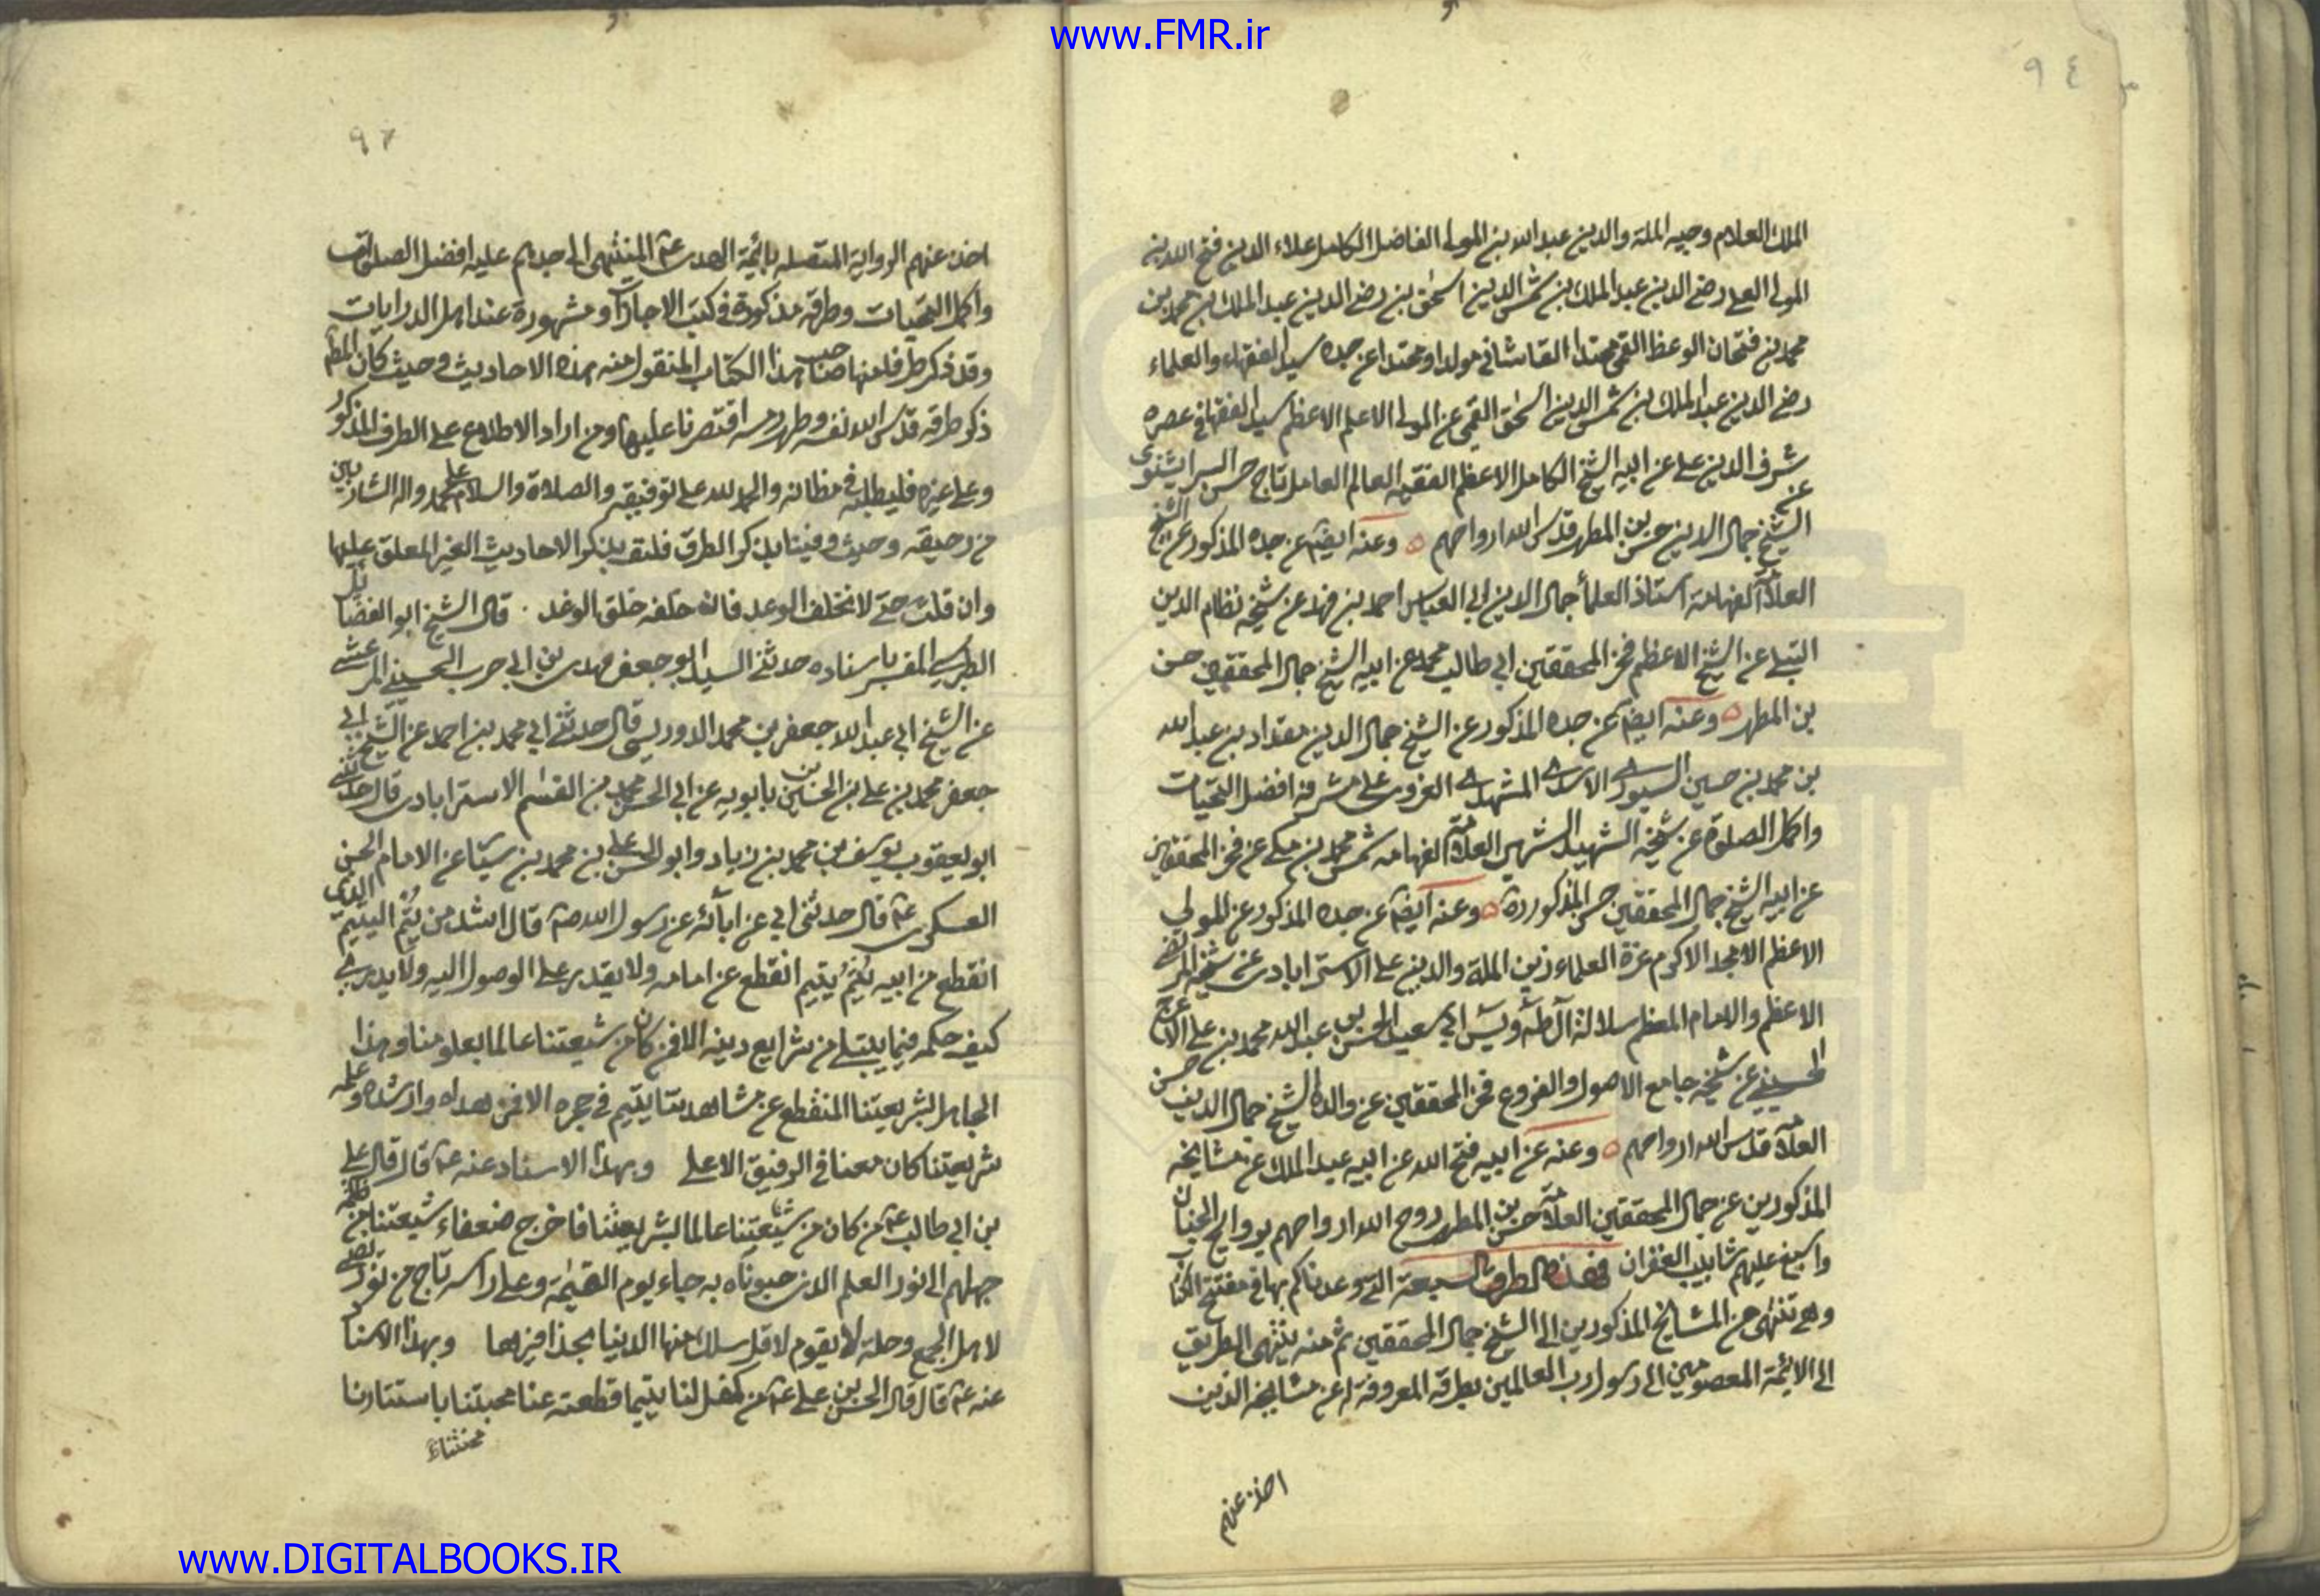 www.FMR.ir
٩٤
الملك العلام وجيه الملة والدين عبد الله بن المولى الفاضل الكامل علاء الدين فتح الله بن
المولى العلى رضى الدين عبد الملك بن شمس الدين اسحق بن رضى الدين عبد الملك بن محمد بن
محمد بن فتحان الوعظ القمى محتدا القاشانى مولدا ومحتدا عن جده سيد الفقهاء والعلماء
رضى الدين عبد الملك بن شمس الدين اسحق القمى عن المولى الاعلم الاعظم سيد الفقها فى عصره
شرف الدين على عن ابيه الشيخ الكامل الاعظم الفقيه العالم العامل تاج حسن السرابشنوى عن
الشيخ جمال الدين حسن بن المطهر قدس الله ارواحهم ه وعنه ايضا عن جده المذكور عن الشيخ
العلامة الفهامة استاذ العلماء جمال الدين ابى العباس احمد بن فهد عن شيخه نظام الدين
النيلى عن الشيخ الاعظم فخر المحققين ابى طالب محمد عن ابيه الشيخ جمال المحققين حسن
بن المطهر ه وعنه ايضا عن جده المذكور عن الشيخ جمال الدين مقداد بن عبد الله
بن محمد بن حسين السيورى الاسدى المشهدى الغروى على مشرفه افضل التحيات
واكمل الصلوة عن شيخه الشهيد الشهير العلامة الفهامه شمس محمد بن مكى عن فخر المحققين
عن ابيه الشيخ جمال المحققين حسن المذكور ره ه وعنه ايضا عن جده المذكور عن المولى
الاعظم الامجد الاكرم غرة العلماء زين الملة والدين على الاسترابادى عن شيخه المرتضى
الاعظم والامام المعظم سلالة آل طه ويس ابى سعيد الحسن بن عبد الله محمد بن على الاعرج
الحسينى عن شيخه جامع الاصول والفروع فخر المحققين عن والده الشيخ جمال الدين حسن
العلامة قدس الله ارواحهم ه وعنه عن ابيه فتح الله عن ابيه عبد الملك عن مشايخه
المذكورين عن جمال المحققين العلامة حسن بن المطهر روح الله ارواحهم بروايح الجنان
واسبغ عليهم شابيب الغفران فهذه الطرق السبعة التى وعدناكم بها فى مفتتح الكتاب
وهى تنتهى عن المشايخ المذكورين الى الشيخ جمال المحققين ثم منه ينتهى الطريق
الى الائمة المعصومين الى رسول رب العالمين بطرقه المعروفة له عن مشايخه الذين
اخذ عنهم
اخذ عنهم الرواية المتصله بائمة الهدى عم المنتهى الى جدهم عليه افضل الصلوات
واكمل التحيات وطرقه مذكورة فى كتب الاجازات ومشهورة عند اهل الدرايات
وقد ذكر طرفا منها صاحب هذا الكتاب المنقول منه هذه الاحاديث وحيث كان المطم
ذكر طرقه قدس الله نفسه وطهر رمسه اقتصرنا عليها ومن اراد الاطلاع على الطرق المذكور
وعلى غيره فليطلبه فى مظانه والحمد لله على توفيقه والصلاة والسلام على محمد واله الشاربين
من رحيقه وحيث وفينا بذكر الطرق فلنف بذكر الاحاديث الغير المعلق عليها
وان قلت حتى لا نخلف الوعد فانه خلفه خلق الوغد . قال الشيخ ابو الفضائل
الطبرسى المفسر باسناده حدثنى السيد ابو جعفر مهدى بن ابى حرب الحسينى المرعشى
عن الشيخ ابى عبد الله جعفر بن محمد الدوريستى قال حدثنى ابى محمد بن احمد عن الشيخ ابى
جعفر محمد بن على بن الحسين بن بابويه عن ابى الحسن محمد بن القسم الاسترابادى قال حدثنى
ابو يعقوب يوسف بن محمد بن زياد وابو الحسن على بن محمد بن سيار عن الامام الحسن
العسكرى عم قال حدثنى ابى عن آبائه عن رسول الله صم قال اشد من يتم اليتيم الذى
انقطع من ابيه يتم يتيم انقطع عن امامه ولا يقدر على الوصول اليه ولا يدرى
كيف حكمه فيما يبتلى من شرايع دينه الا فمن كان من شيعتنا عالما بعلومنا وهذا
الجاهل بشريعتنا المنقطع عن مشاهدتنا يتيم فى حجره الا فمن هداه وارشده وعلمه
شريعتنا كان معنا فى الرفيق الاعلى وبهذا الاسناد عنه عم قال قال على
بن ابى طالب عم من كان من شيعتنا عالما بشريعتنا فاخرج ضعفاء شيعتنا من ظلمة
جهلهم الى نور العلم الذى حبوناه به جاء يوم القيمة وعلى راسه تاج من نور يضئ
لاهل الجمع وحلة لا يقوم لاقل سلك منها الدنيا بحذافيرها وبهذا الاسناد
عنه عم قال قال الحسين بن على عم من كفل لنا يتيما قطعته عنا محبتنا باستتارنا
www.DIGITALBOOKS.IR